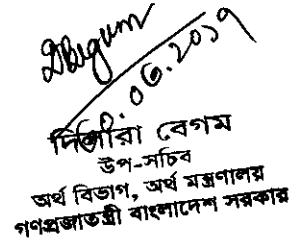 DBegum
30.06.2019
দিলারা বেগম
উপ-সচিব
অর্থ বিভাগ, অর্থ মন্ত্রণালয়
গণপ্রজাতন্ত্রী বাংলাদেশ সরকার